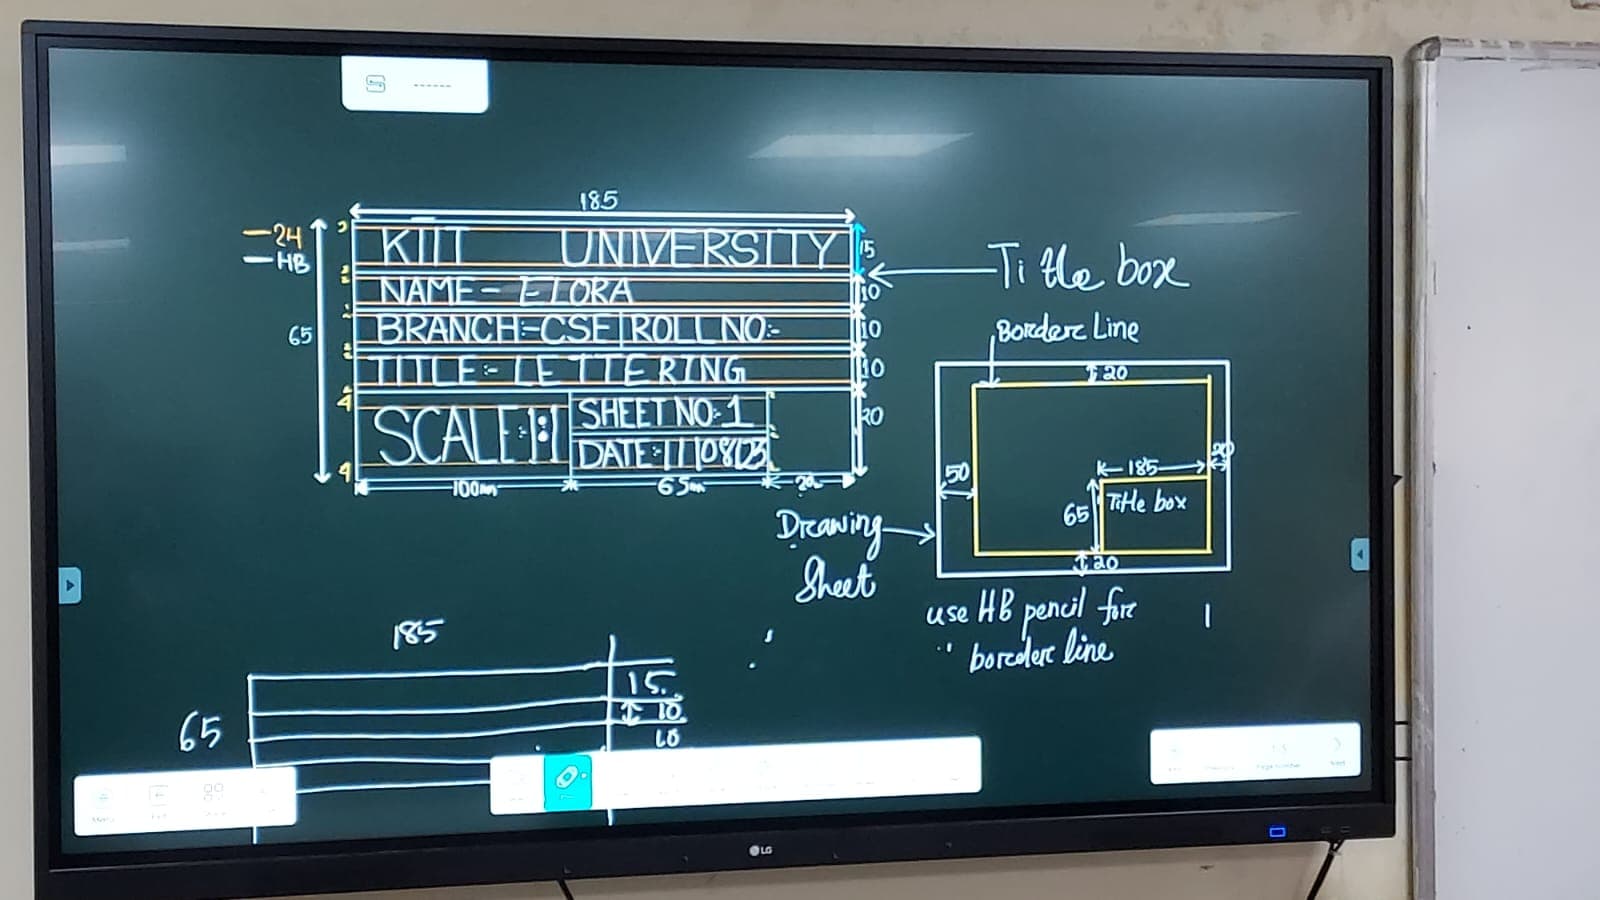 185
24
HB
65
KIIT UNIVERSITY
NAME- ELORA
BRANCH:-CSE ROLL NO:-
TITLE:- LETTERING
SCALE:- 1:1
SHEET NO:-1
DATE:-11/08/23
15
10
10
10
20
3
2
2
2
2
2
4
4
100mm
65mm
20
Title box
Borderc Line
20
50
185
20
65
Title box
20
Drcawing
Sheet
use HB pencil forc
borcderc line
185
65
15
10
10
LG